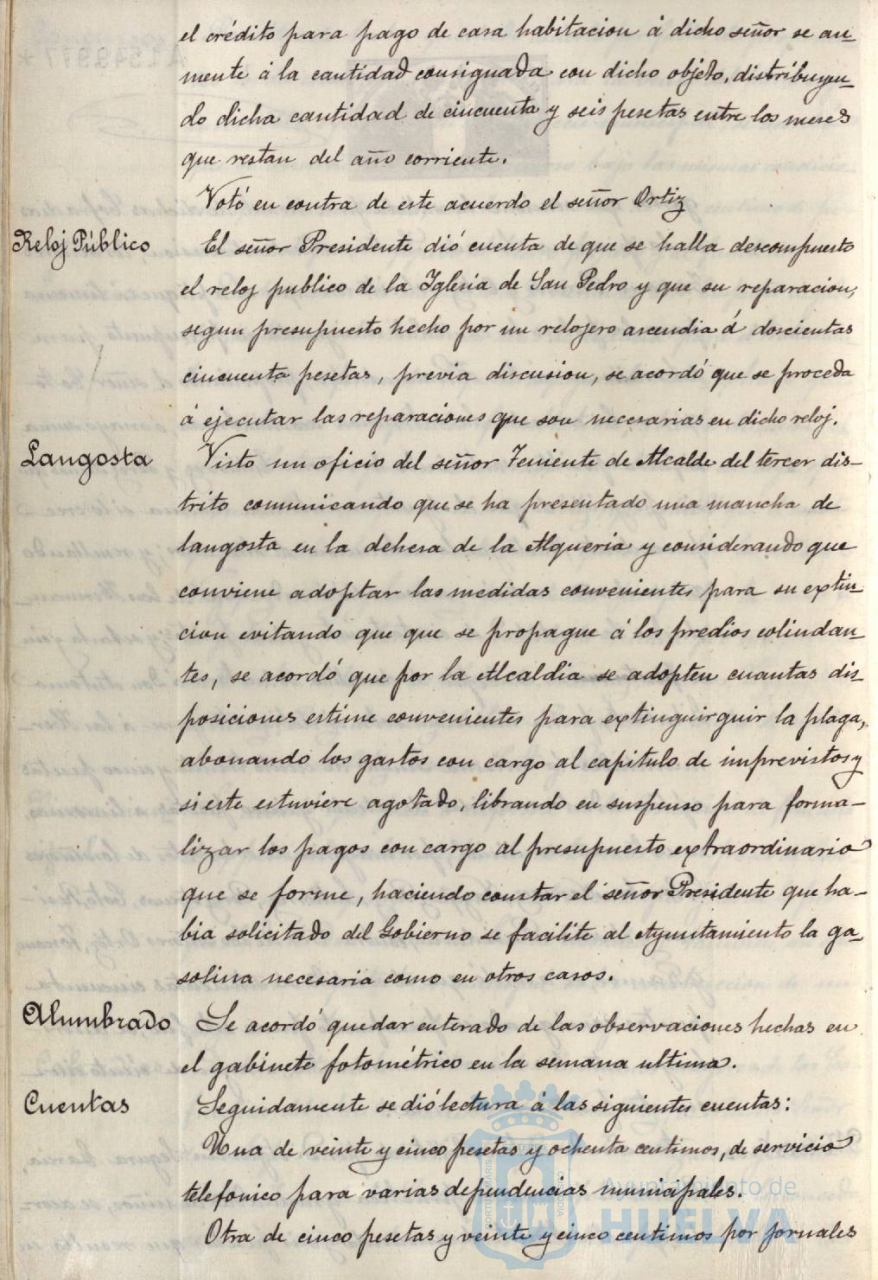 el crédito para pago de casa habitacion á dicho señor se au-
mente á la cantidad consignada con dicho objeto, distribuyen-
do dicha cantidad de cincuenta y seis pesetas entre los meses
que restan del año corriente.
Votó en contra de este acuerdo el señor Ortiz
Reloj Público
El señor Presidente dió cuenta de que se halla descompuesto
el reloj publico de la Iglesia de San Pedro y que su reparacion,
segun presupuesto hecho por un relojero ascendia á doscientas
cincuenta pesetas, previa discusion, se acordó que se proceda
á ejecutar las reparaciones que son necesarias en dicho reloj.
Langosta
Visto un oficio del señor Teniente de Alcalde del tercer dis-
trito comunicando que se ha presentado una mancha de
langosta en la dehesa de la Alqueria y considerando que
conviene adoptar las medidas convenientes para su extin-
cion evitando que que se propague á los predios colindan-
tes, se acordó que por la Alcaldia se adopten cuantas dis-
posiciones estime convenientes para extinguirguir la plaga,
abonando los gastos con cargo al capitulo de imprevistos y
si este estuviere agotado, librando en suspenso para forma-
lizar los pagos con cargo al presupuesto extraordinario
que se forme, haciendo constar el señor Presidente que ha-
bia solicitado del Gobierno se facilite al Ayuntamiento la ga-
solina necesaria como en otros casos.
Alumbrado
Se acordó quedar enterado de las observaciones hechas en
el gabinete fotométrico en la semana ultima.
Cuentas
Seguidamente se dió lectura á las siguientes cuentas:
Una de veinte y cinco pesetas y ochenta centimos, de servicio
telefonico para varias dependencias municipales.
Ayuntamiento de
HUELVA
Otra de cinco pesetas y veinte y cinco centimos por jornales